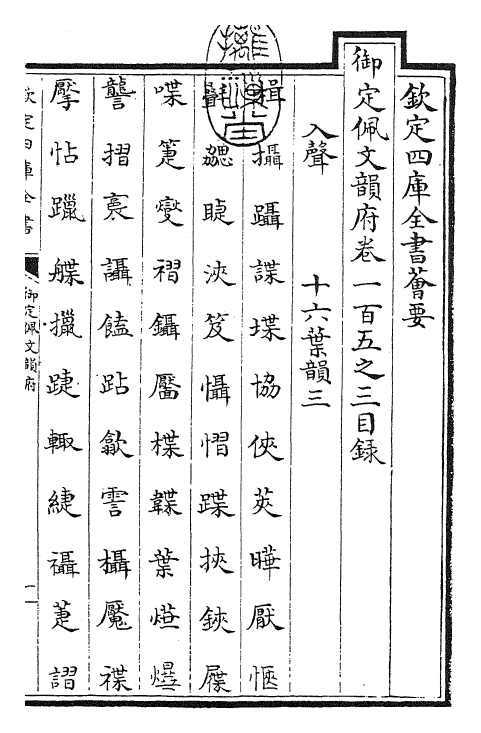 欽定四庫全書薈要
御定佩文韻府卷一百五之三目錄
入聲
十六葉韻三
揖攝躡諜堞協俠莢曄厭愜
勰睫浹笈懾慴蹀挾鋏屧
喋箑燮褶鑷靨楪韘葉
讋摺裛讘饁跕歙霅欇魘褋
擪怗躐艓擸踕輒緁襵萐謵
欽定四庫全書
御定佩文韻府
一